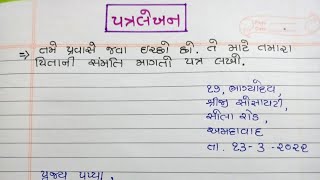 પત્રલેખન
⇒ તમે પ્રવાસે જવા ઇચ્છો છો. તે માટે તમારા
પિતાની સંમતિ માગતો પત્ર લખો.
૨૭, ભાગ્યોદય,
શ્રીજી સોસાયટી,
સીતા રોડ,
અમદાવાદ
તા. ૧૩-૩-૨૦૨૨
પૂજ્ય પપ્પા,